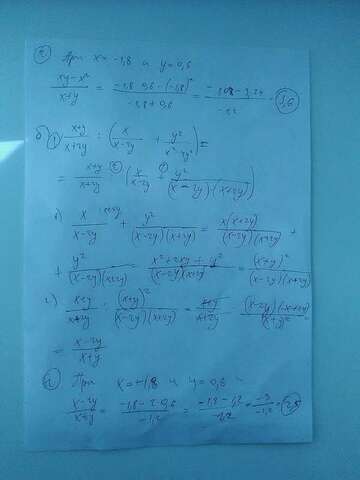 2) При x = -1,8 и y = 0,6
(xy - x²)/(x+y) = (-1,8 · 0,6 - (-1,8)²)/(-1,8 + 0,6) = (-1,08 - 3,24)/(-1,2) = 3,6
б) 1) (x+y)/(x+2y) : (x/(x-2y) + y²/(x²-4y²)) =
= (x+y)/(x+2y) : (x/(x-2y) + y²/((x-2y)·(x+2y)))
1) x/(x-2y) + y²/((x-2y)(x+2y)) = x(x+2y)/((x-2y)(x+2y)) +
+ y²/((x-2y)(x+2y)) = (x²+2xy+y²)/((x-2y)(x+2y)) = (x+y)²/((x-2y)(x+2y))
2) (x+y)/(x+2y) : (x+y)²/((x-2y)(x+2y)) = (x+y)/(x+2y) · (x-2y)(x+2y)/(x+y)² =
= (x-2y)/(x+y)
2) При x = -1,8 и y = 0,6
(x-2y)/(x+y) = (-1,8 - 2·0,6)/(-1,2) = (-1,8 - 1,2)/(-1,2) = -3/(-1,2) = 2,5